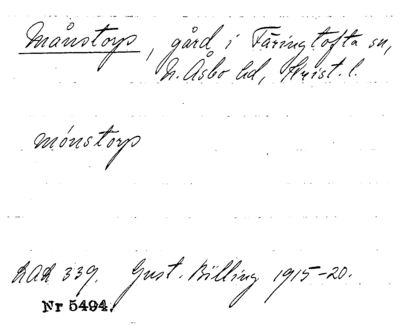 Månstorp, gård i Färingtofta sn,
N. Åsbo hd, Krist. l.
mónstorp
LAL 339. Gust. Billing 1915-20.
Nr 5494.